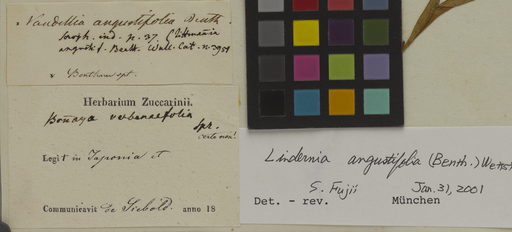 Vandellia angustifolia Benth.
Scroph. ind. p. 37. (Tittmannia
angustif. Benth. Wall. Cat. n. 3951
Bentham spt.
Herbarium Zuccarinii.
Bonaya verbenaefolia
Spr.
certe non!
Legit in Japonia et
Communicavit de Siebold. anno 18
Lindernia angustifolia (Benth.) Wettst
S. Fujii Jan. 31, 2001
Det. - rev. München